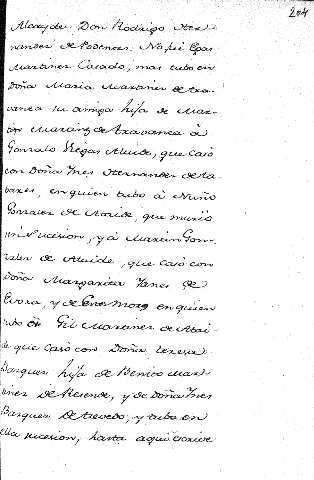 204
Alcayde Don Rodrigo Her-
nandez de Podenes. No fué Egas
Martinez Casado, mas tubo en
Doña Maria Martinez de Ara-
vanca su amiga hija de Mar-
tin Martinz de Aravanca à
Gonzalo Viegas Ataide, que casò
con Doña Ines Hernandez de Ta-
bares, en quien tubo à Nuño
Gonzalez de Ataide, que muriò
sin sucesion, y á Martin Gon-
zalez de Ataide, que casò con
Doña Margarita Yanes de
Evora, y de en quien
tubo Gil Martinez de Atai-
de que casò con Doña Teresa
Basques hija de Benito Mar-
tinez de Resende, y de Doña Ines
Basques de Azevedo, y tubo en
ella sucesion, hasta aqui escrive